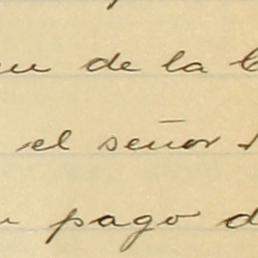 de la
el señor
pago d